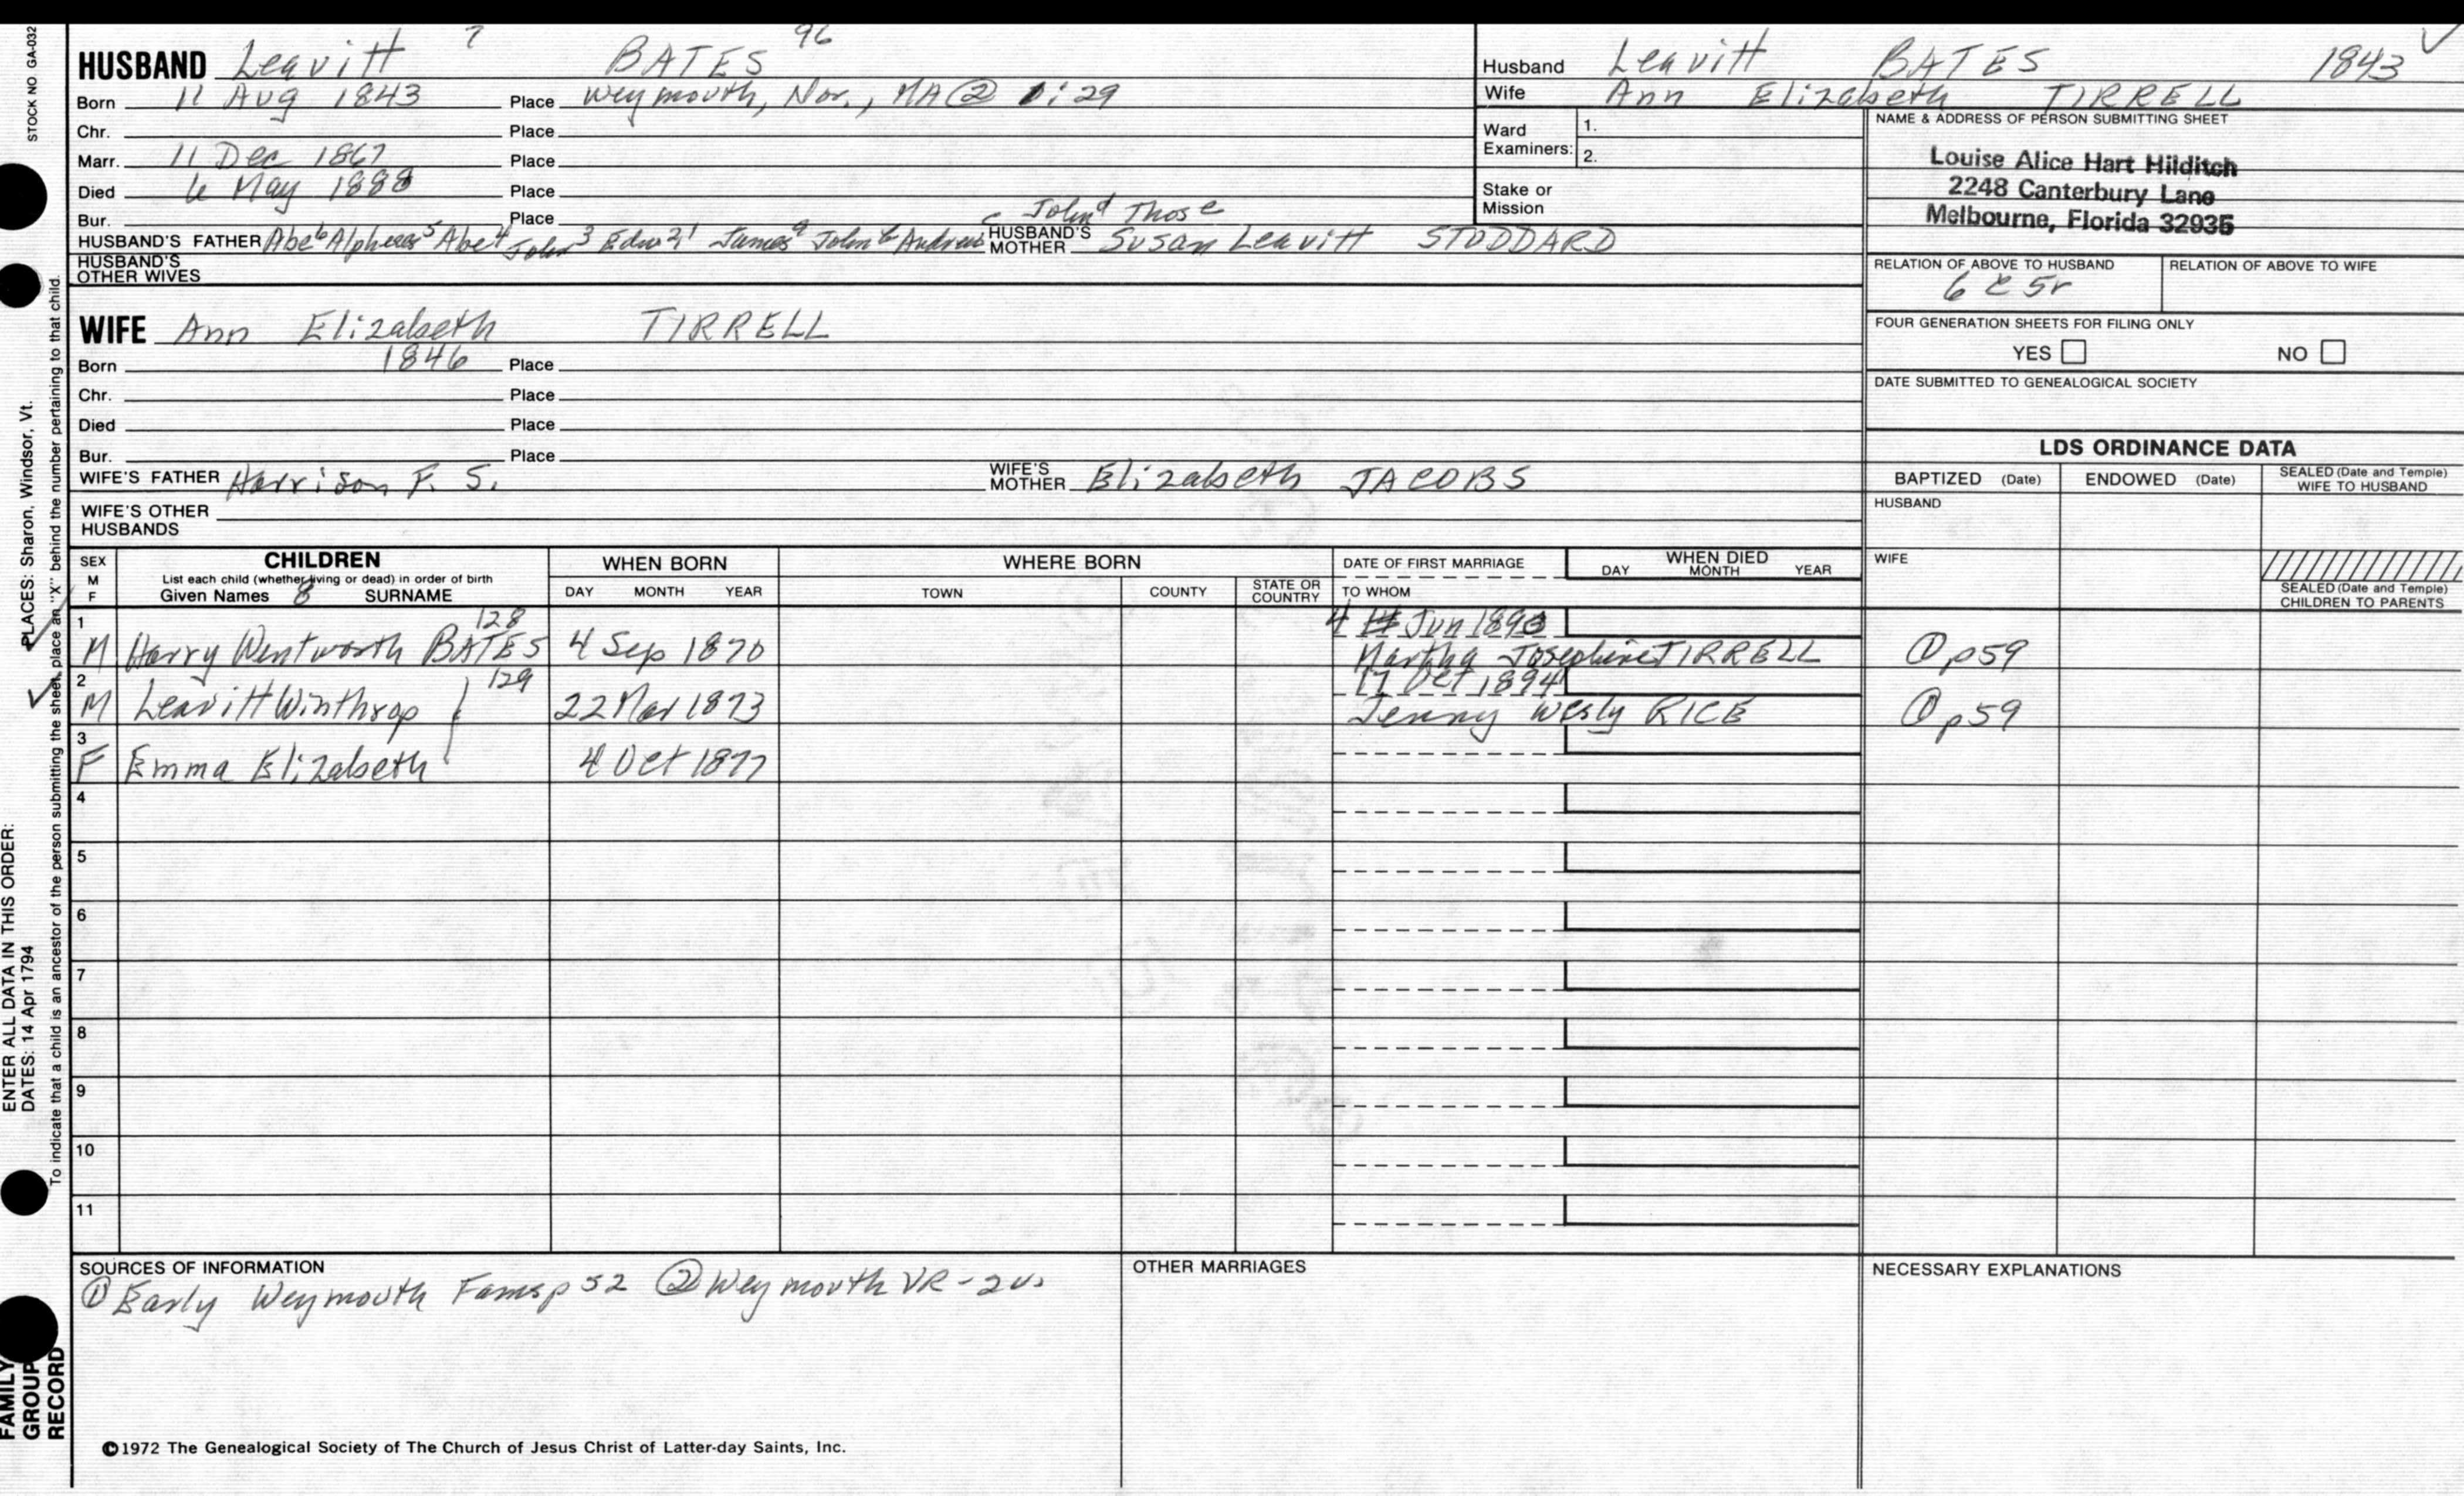 STOCK NO GA-032
HUSBAND Leavitt 7 BATES 96
Born 11 Aug 1843 Place Weymouth, Nor., MA ② 1:29
Chr. Place
Marr. 11 Dec 1867 Place
Died 6 May 1888 Place
Bur. Place
c John d Thos e
HUSBAND'S FATHER Abe 6 Alpheus 5 Abe 4 John 3 Edw 2,1 James a John b Andrew HUSBAND'S MOTHER Susan Leavitt STODDARD
HUSBAND'S OTHER WIVES
Husband Leavitt BATES 1843
Wife Ann Elizabeth TIRRELL
Ward Examiners: 1.
2.
Stake or Mission
NAME & ADDRESS OF PERSON SUBMITTING SHEET
Louise Alice Hart Hilditch
2248 Canterbury Lane
Melbourne, Florida 32935
RELATION OF ABOVE TO HUSBAND RELATION OF ABOVE TO WIFE
6 C 5r
FOUR GENERATION SHEETS FOR FILING ONLY
YES NO
DATE SUBMITTED TO GENEALOGICAL SOCIETY
WIFE Ann Elizabeth TIRRELL
Born 1846 Place
Chr. Place
Died Place
Bur. Place
WIFE'S FATHER Harrison F. S. WIFE'S MOTHER Elizabeth JACOBS
WIFE'S OTHER HUSBANDS
LDS ORDINANCE DATA
BAPTIZED (Date) ENDOWED (Date) SEALED (Date and Temple) WIFE TO HUSBAND
HUSBAND
WIFE
SEALED (Date and Temple) CHILDREN TO PARENTS
SEX M F CHILDREN WHEN BORN WHERE BORN DATE OF FIRST MARRIAGE WHEN DIED
List each child (whether living or dead) in order of birth
Given Names 8 SURNAME DAY MONTH YEAR TOWN COUNTY STATE OR COUNTRY TO WHOM DAY MONTH YEAR
1 128 4 Jun 1890
M Harry Wentworth BATES 4 Sep 1870 Martha Josephine TIRRELL ① p59
2 129 17 Oct 1894
M Leavitt Winthrop 22 Mar 1873 Jenny Wesly RICE ① p59
3
F Emma Elizabeth 4 Oct 1877
4
5
6
7
8
9
10
11
SOURCES OF INFORMATION
① Early Weymouth Fams p 52 ② Weymouth VR-2v.
OTHER MARRIAGES
NECESSARY EXPLANATIONS
©1972 The Genealogical Society of The Church of Jesus Christ of Latter-day Saints, Inc.
FAMILY GROUP RECORD
ENTER ALL DATA IN THIS ORDER:
DATES: 14 Apr 1794 PLACES: Sharon, Windsor, Vt.
To indicate that a child is an ancestor of the person submitting the sheet, place an "X" behind the number pertaining to that child.